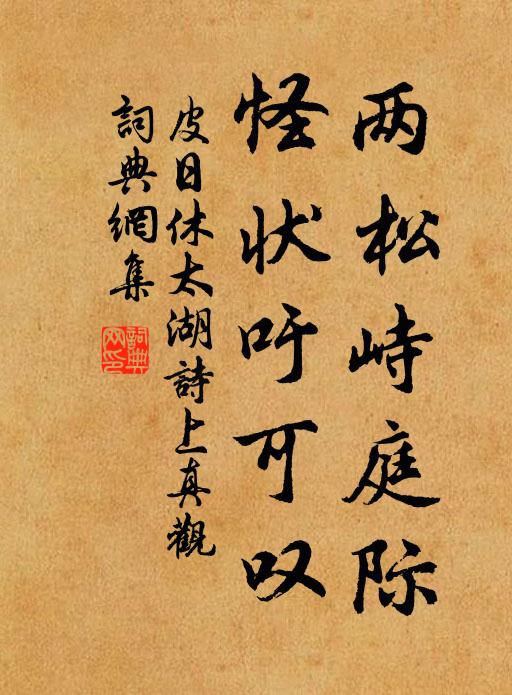 两松峙庭际
怪状吁可叹
皮日休太湖詩上真觀
詞典網集
詞典
网印